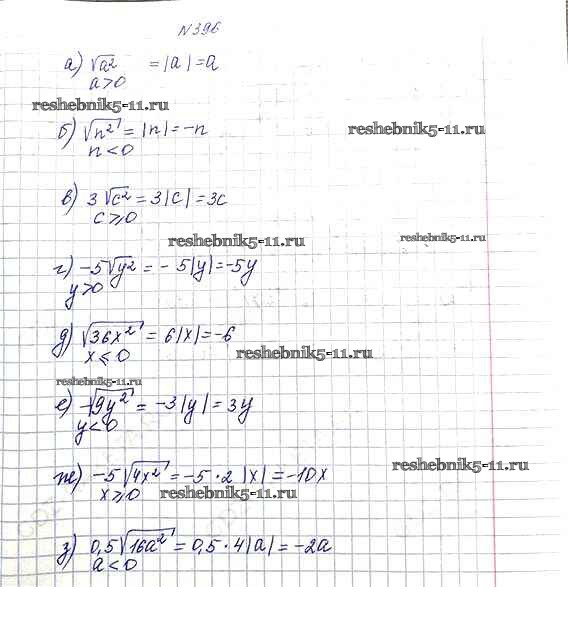 N 396
а) √a² = |a| = a
a > 0
reshebnik5-11.ru
б) √n² = |n| = -n
n < 0
reshebnik5-11.ru
в) 3√c² = 3|c| = 3c
c ⩾ 0
reshebnik5-11.ru
reshebnik5-11.ru
г) -5√y² = -5|y| = -5y
y > 0
д) √36x² = 6|x| = -6
x ⩽ 0
reshebnik5-11.ru
reshebnik5-11.ru
е) -√9y² = -3|y| = 3y
y < 0
reshebnik5-11.ru
ж) -5√4x² = -5 · 2 |x| = -10x
x ⩾ 0
reshebnik5-11.ru
з) 0,5√16a² = 0,5 · 4|a| = -2a
a < 0